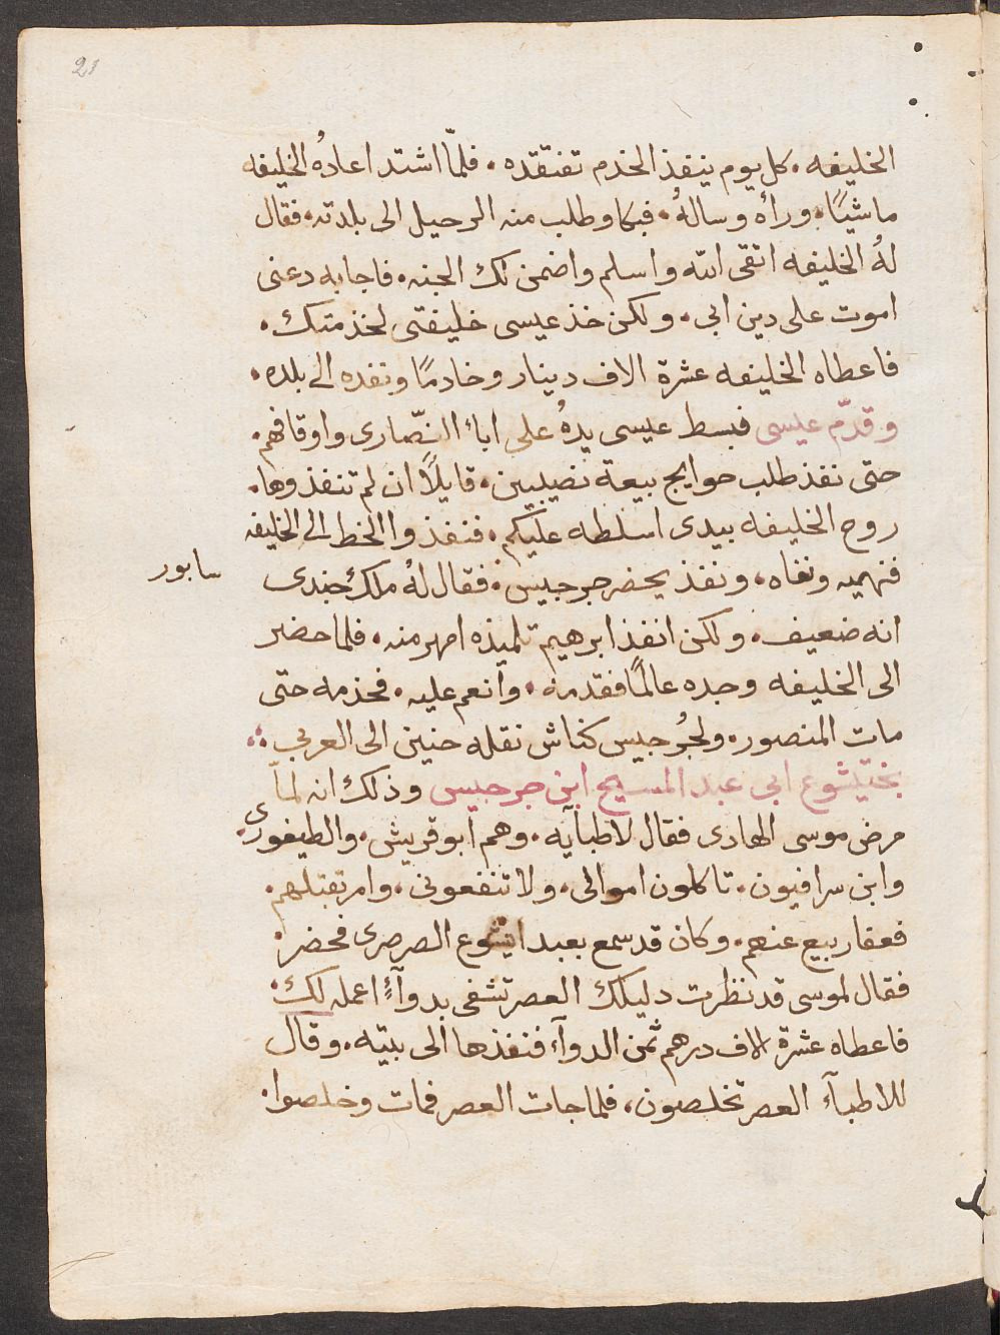 21
الخليفه. كل يوم ينفذ الخدم تفتقده. فلمّا اشتد اعادهُ الخليفه
ماشيًا. ورأه وسالهُ. فبكا وطلب منه الرحيل الى بلدته. فقال
لهُ الخليفه اتقى الله واسلم واضمن لك الجنه. فاجابه دعنى
اموت على دين ابي. ولكن خذ عيسى خليفتى لخدمتك.
فاعطاه الخليفه عشرة الاف دينار وخادمًا ونفده الى بلده.
وقدّم عيسى فبسط عيسى يدهُ على اباء النصارى واوقافهم.
حتى نفذ طلب حوايج بيعة نصيبين. قايلاً ان لم تنفذوها.
روح الخليفه بيدى اسلطه عليكم. فنفذوا الخط الى الخليفه
فنهبه ونفاه، ونفذ يحضر جرجيس. فقال لهُ ملك جندى
سابور
انه ضعيف. ولكن انفذ ابرهيم تلميذه امهر منه. فلما حضر
الى الخليفه وجده عالمًا فقدمه. وانعم عليه. فخدمه حتى
مات المنصور. ولجُرجيس كناش نقله حنين الى العربي
بختيشوع ابى عبد المسيح ابن جرجيس وذلك انه لما
مرض موسى الهادى فقال لاطبآيه. وهم ابو قريش. والطيفورى.
وابن سرافيون. تاكلون اموالى. ولا تنفعونى. وامر بقتلهم.
فعفا ربيع عنهم. وكان قد سمع بعبد ايشوع الصرصرى فحضر.
فقال لموسى قد نظرت دليلك العصر تشفى بدوآءٍ اعمله لك.
فاعطاه عشرة الاف درهم ثمن الدوآء فنفذها الى بيته. وقال
للاطبآء العصر تخلصون، فلما جات العصر فمات وخلصوا.